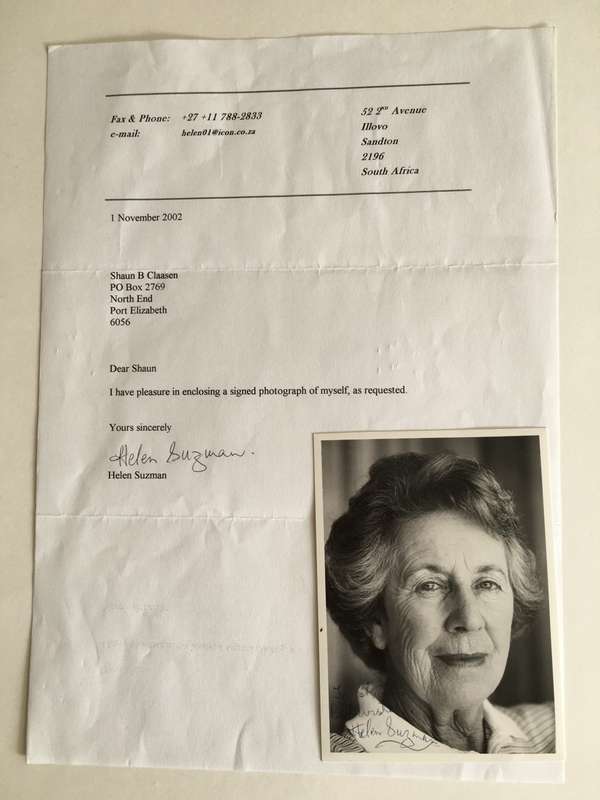 Fax & Phone: +27 +11 788-2833
e-mail: helen01@icon.co.za
52 2nd Avenue
Illovo
Sandton
2196
South Africa
1 November 2002
Shaun B Claasen
PO Box 2769
North End
Port Elizabeth
6056
Dear Shaun
I have pleasure in enclosing a signed photograph of myself, as requested.
Yours sincerely
Helen Suzman.
Helen Suzman
Helen Suzman